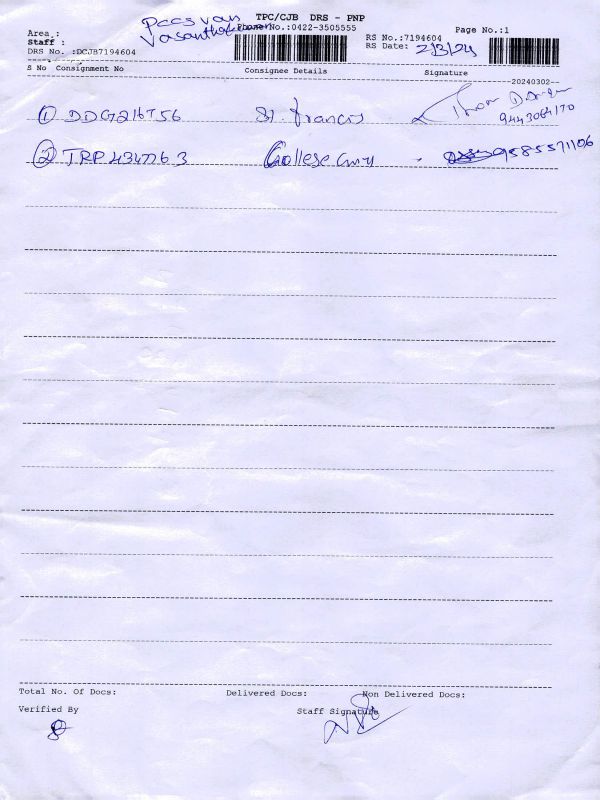 TPC/CJB DRS - PNP
Pccs van
Area : Phone No.:0422-3505555 Page No.:1
Staff : RS No.:7194604
DRS No. :DCJB7194604 RS Date: 2/3/24
S No Consignment No Consignee Details Signature
--20240302--
① DDG216756 St. francis
9443064170
② TRP434726 3 College 9585571106
Total No. Of Docs: Delivered Docs: Non Delivered Docs:
Verified By Staff Signature